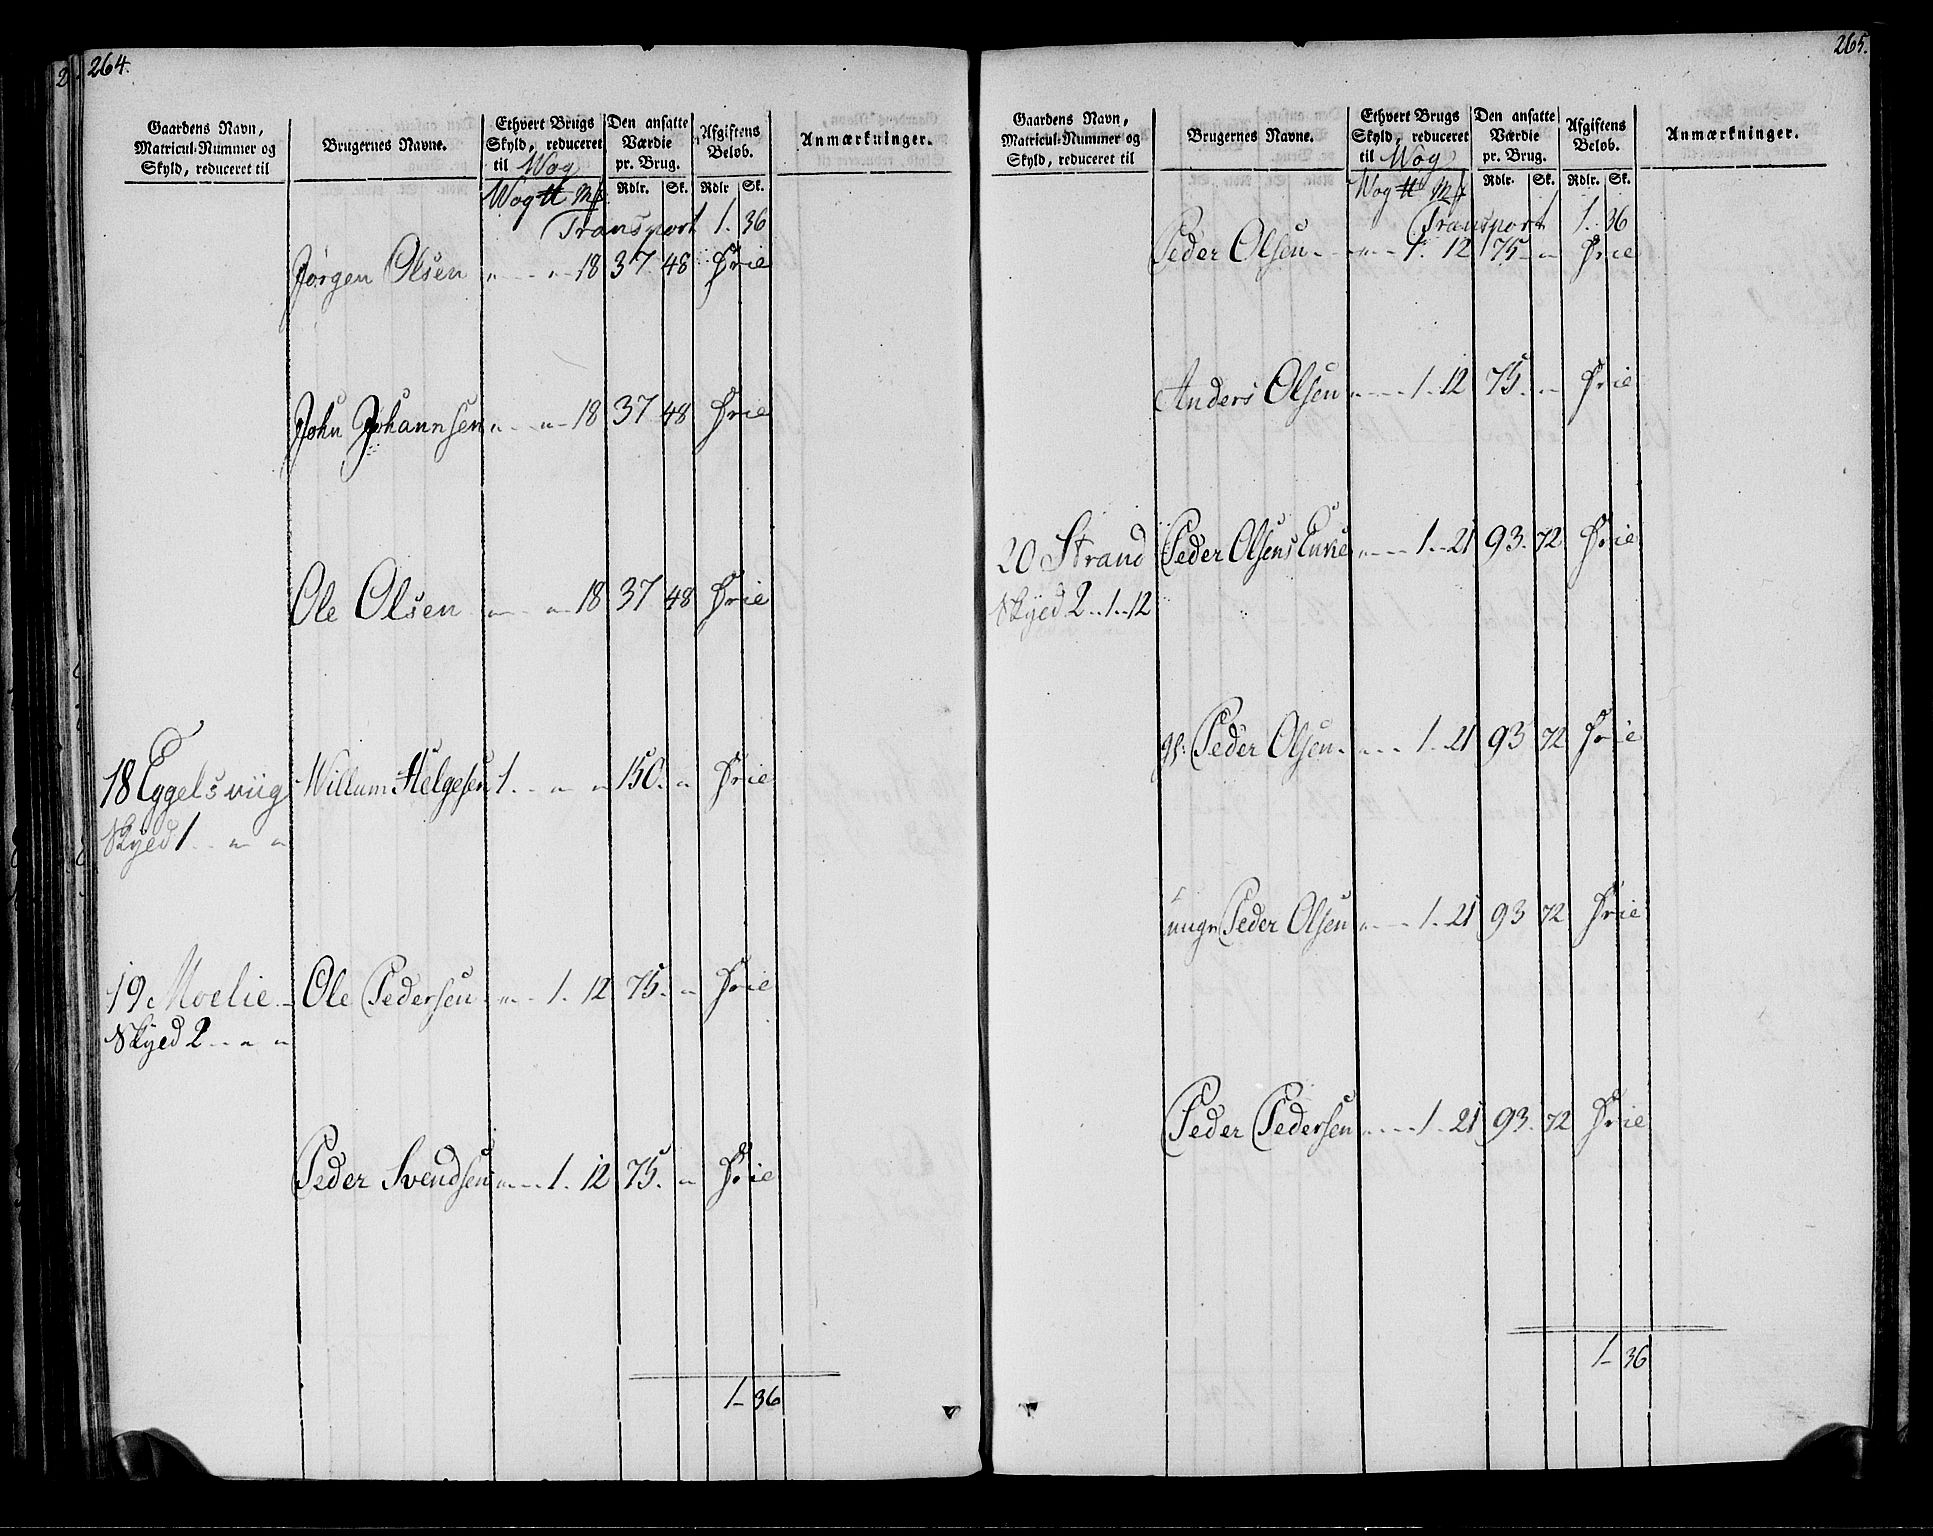 264.
Gaardens Navn, Matricul-Nummer og Skyld, reduceret til | Brugernes Navne. | Ethvert Brugs Skyld, reduceret til Wog | Den ansatte Værdie pr. Brug. | Afgiftens Beløb. | Anmærkninger.
Wog ℔ Mk | Rdlr. | Sk. | Rdlr. | Sk.
Transport 1. 36
Jørgen Olsen „ „ 18 37 48 Frie
John Johannsen „ „ 18 37 48 Frie
Ole Olsen „ „ 18 37 48 Frie
18 Eggelsviig Willum Helgesen 1. „ „ 150. „ Frie
Skyld 1 „ „
19 Moelie Ole Pedersen „ 1. 12 75. „ Frie
Skyld 2 „ „
Peder Svendsen „ 1. 12 75. „ Frie
1 - 36
265.
Gaardens Navn, Matricul-Nummer og Skyld, reduceret til | Brugernes Navne. | Ethvert Brugs Skyld, reduceret til Wog | Den ansatte Værdie pr. Brug. | Afgiftens Beløb. | Anmærkninger.
Wog ℔ Mk | Rdlr. | Sk. | Rdlr. | Sk.
Transport 1. 36
Peder Olsen „ 1. 12 75 „ Frie
Anders Olsen „ 1. 12 75. „ Frie
20 Strand Peder Olsens Enke „ 1. 21 93. 72 Frie
Skyld 2 „ 1 „ 12
gl: Peder Olsen „ 1. 21 93 72 Frie
unge Peder Olsen „ 1. 21 93 72 Frie
Peder Pedersen „ 1. 21 93. 72 Frie
1 - 36